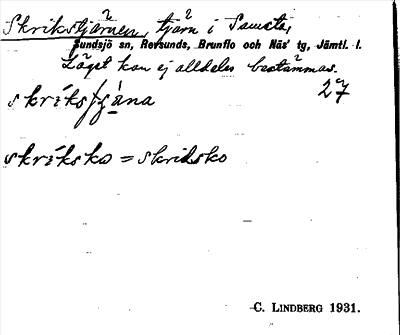 Skrikstjärnen, tjärn i
Sundsjö sn, Revsunds, Brunflo och Näs' tg, Jämtl. l.
Läget kan ej alldeles bestämmas.
27
skríksko = skriksko
C. LINDBERG 1931.